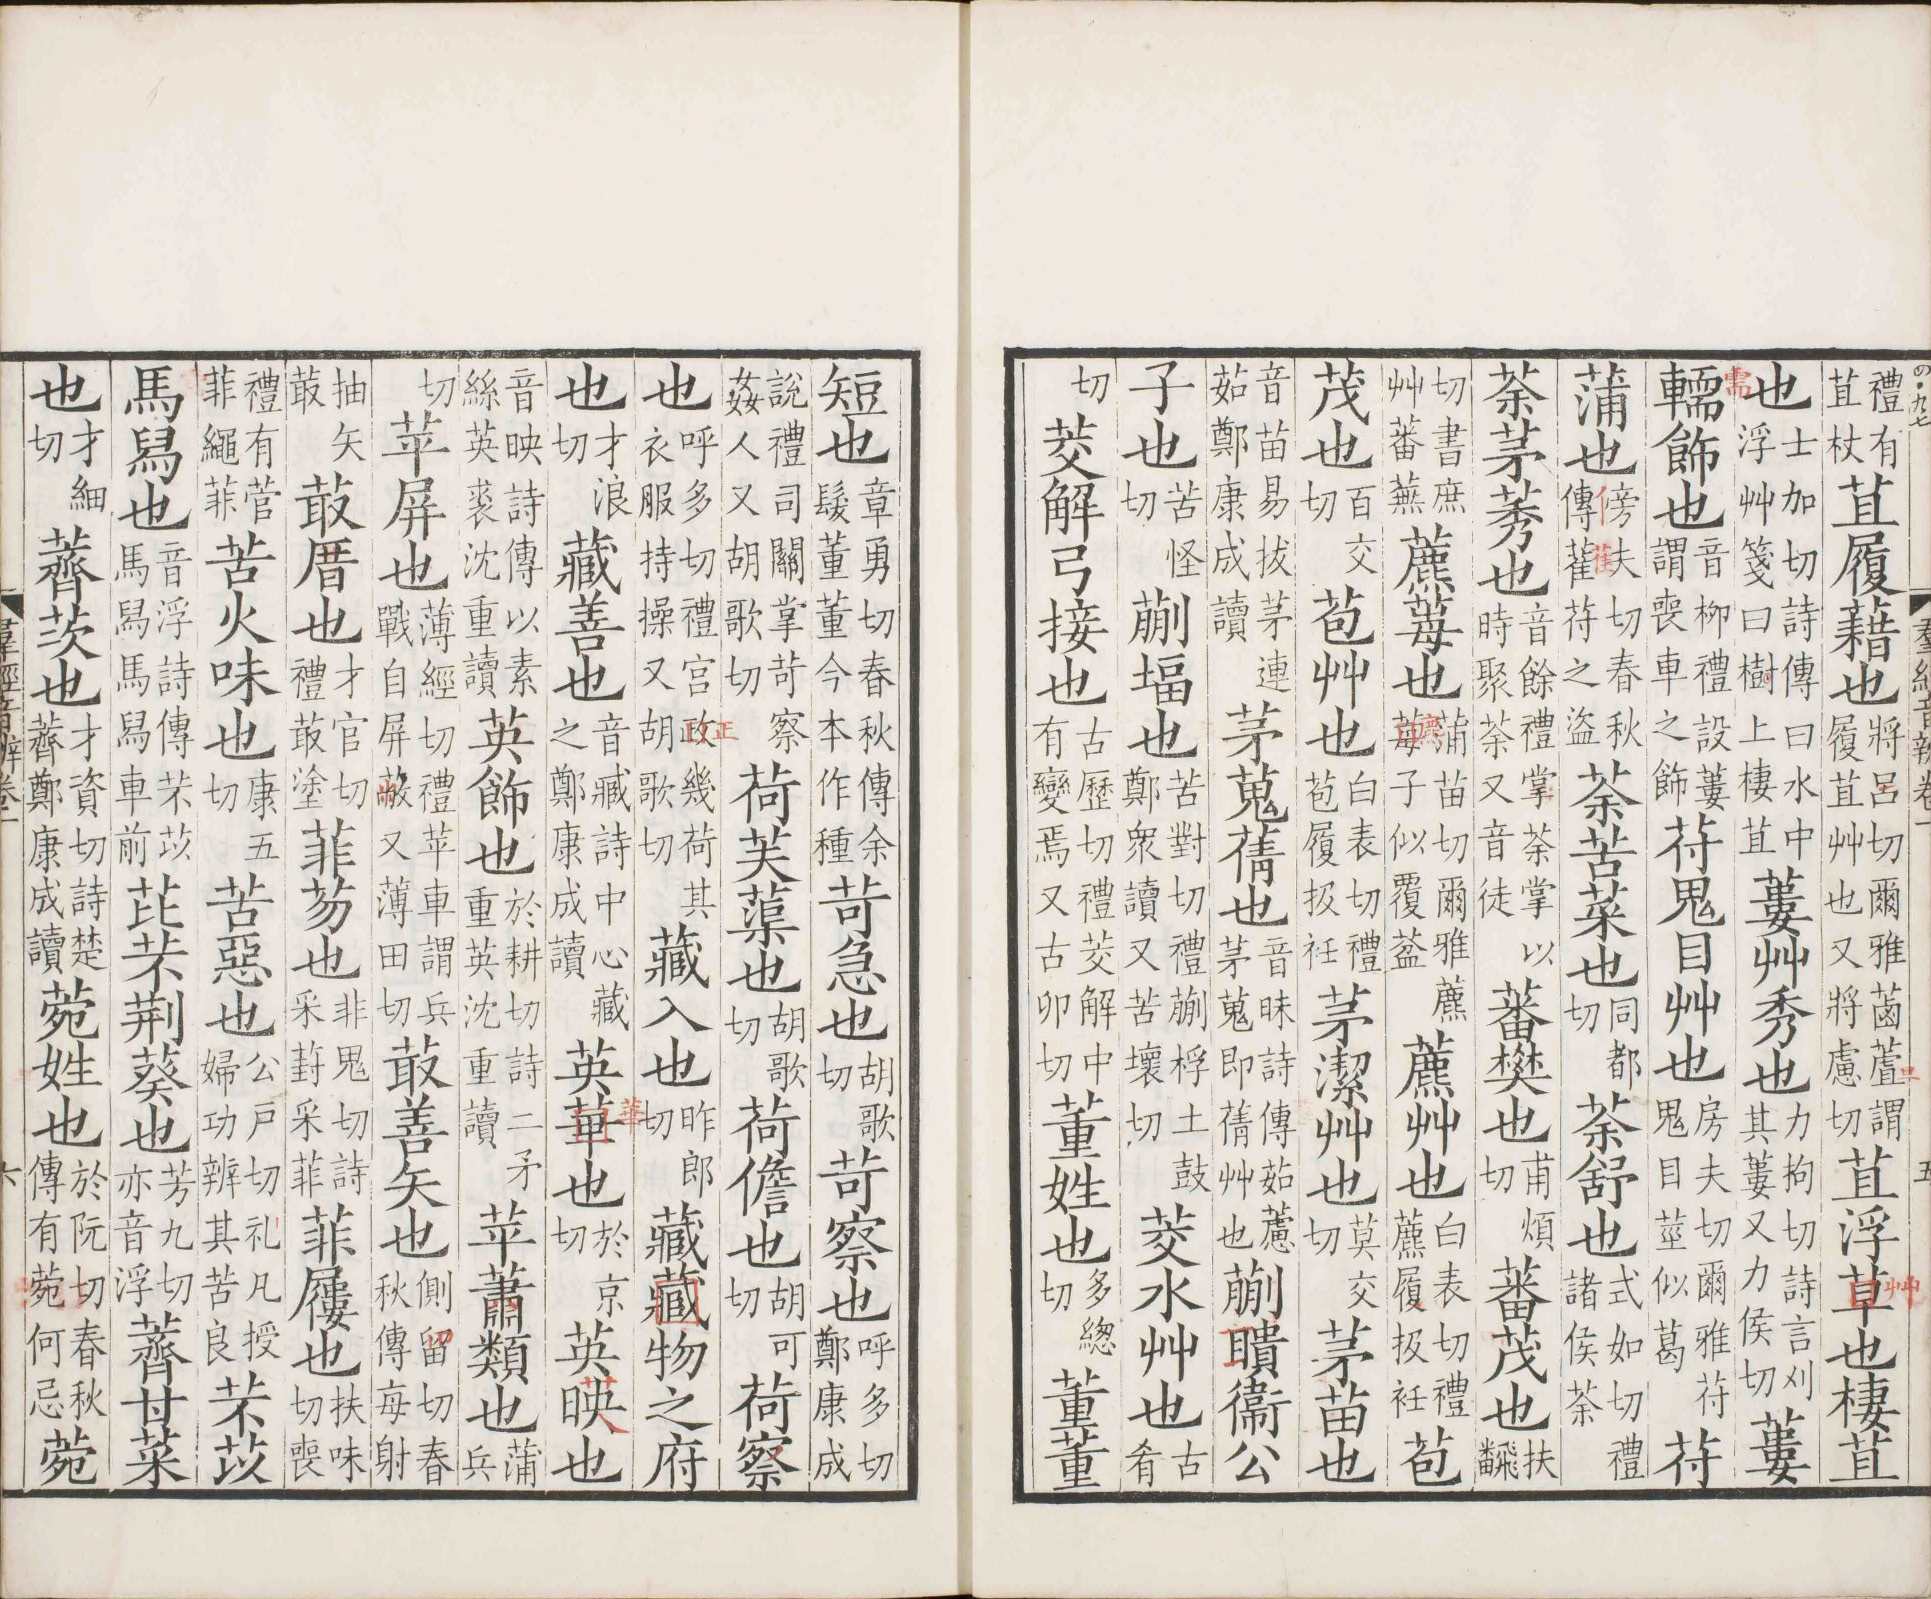 禮有苴杖苴履藉也將呂切爾雅菡蘆謂履苴艸也又將慮切苴浮草也棲苴
也士加切詩傳曰水中浮艸箋曰樹上棲苴蔞艸秀也力拘切詩言刈其蔞又力侯切蔞
轜飾也音柳禮設蔞謂喪車之飾苻鬼目艸也房夫切爾雅苻鬼目莖似葛苻
蒲也傍夫切春秋傳雚苻之盜荼苦菜也同都切荼舒也式如切禮諸侯荼
荼茅莠也音餘禮掌荼掌以時聚荼又音徒蕃樊也甫煩切蕃茂也扶飜
切書庶艸蕃蕪藨莓也蒲苗切爾雅藨莓子似覆葐藨艸也白表切禮藨履扱衽苞
茂也百交切苞艸也白表切禮苞履扱衽茅潔艸也莫交切茅苗也
音苗易拔茅連茹鄭康成讀茅蒐蒨也音昧詩傳茹藘茅蒐即蒨艸也蒯聵衞公
子也苦怪切蒯堛也苦對切禮蒯桴土鼓鄭衆讀又苦壞切茭水艸也古肴
切茭解弓接也古歷切禮茭解中有變焉又古卯切董姓也多緫切董董
短也章勇切春秋傳余髮董董今本作種苛急也胡歌切苛察也呼多切鄭康成
說禮司關掌苛察姦人又胡歌切荷芙蕖也胡歌切荷儋也胡可切荷察
也呼多切禮宮政幾荷其衣服持操又胡歌切藏入也昨郎切藏藏物之府
也才浪切藏善也音臧詩中心藏之鄭康成讀英華也於京切英暎也
音映詩傳以素絲英裘沈重讀英飾也於耕切詩二矛重英沈重讀苹蕭類也蒲兵
切苹屏也薄經切禮苹車謂兵戰自屏蔽又薄田切菆善矢也側留切春秋傳每射
抽矢菆菆厝也才官切禮菆塗菲芴也非鬼切詩采葑采菲菲屨也扶味切喪
禮有菅菲繩菲苦火味也康五切苦惡也公戶切礼凡授婦功辨其苦良芣苡
馬舃也音浮詩傳芣苡馬舃馬舃車前芘芣荆葵也芳九切亦音浮薺甘菜
也才細切薺茨也才資切詩楚薺鄭康成讀菀姓也於阮切春秋傳有菀何忌菀